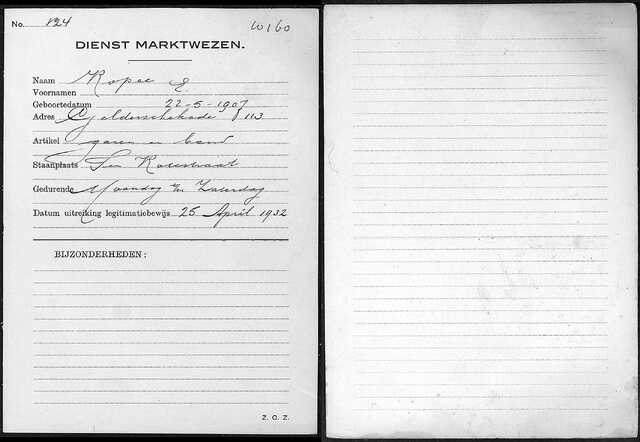 No. 124 W160
DIENST MARKTWEZEN.
Naam Kopee E
Voornamen
Geboortedatum 22-5-1907
Adres Gelderschekade 113
Artikel garen en band
Staanplaats Ten Katestraat
Gedurende Maandag t/m Zaterdag
Datum uitreiking legitimatiebewijs 25 April 1932
BIJZONDERHEDEN:
Z. O. Z.